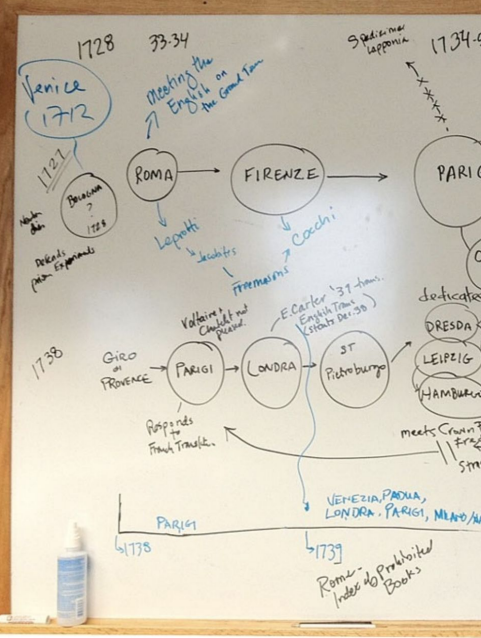 1728
33-34
Spedizione
Lapponia
1734-
Venice
1712
Meeting the
English on
the Grand Tour
1727
BOLOGNA
?
1728
ROMA
FIRENZE
PARIG
Newton
Defends
prism Experiments
Leprotti
Jacobites
Freemasons
Cocchi
Voltaire +
Chatelet not
pleased.
E. Carter '39 trans.
English Trans
(starts Dec. 38)
dedicate
DRESDA
LEIPZIG
HAMBURG
1738
GIRO
PROVENCE
PARIGI
LONDRA
ST
Pietroburgo
Responds
to
French Translation
meets Crown P
Fre
Stra
PARIGI
VENEZIA, PADUA,
LONDRA. PARIGI, MILANO/
1738
1739
Rome-
Index of Prohibited
Books